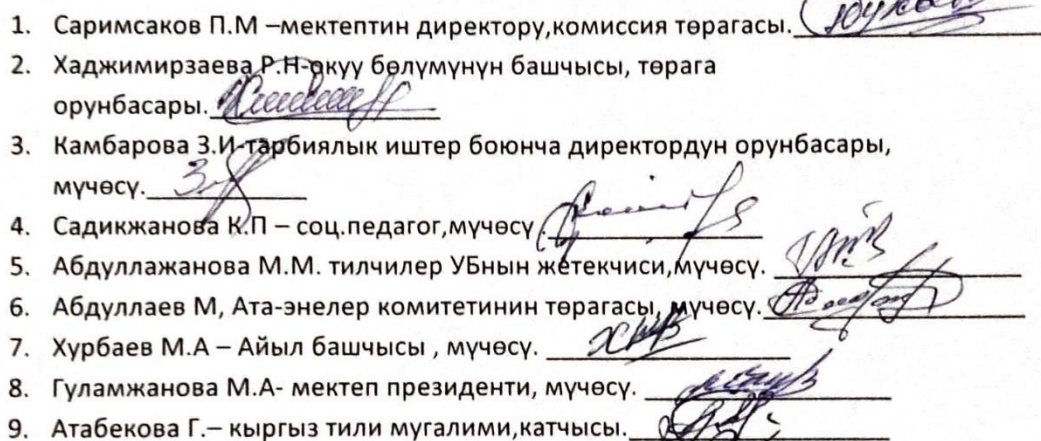 1. Саримсаков П.М –мектептин директору,комиссия төрагасы.
2. Хаджимирзаева Р.Н-окуу бөлүмүнүн башчысы, төрага
орунбасары.
3. Камбарова З.И-тарбиялык иштер боюнча директордун орунбасары,
мүчөсү.
4. Садикжанова К.П – соц.педагог,мүчөсү
5. Абдуллажанова М.М. тилчилер УБнын жетекчиси,мүчөсү.
6. Абдуллаев М, Ата-энелер комитетинин төрагасы, мүчөсү.
7. Хурбаев М.А – Айыл башчысы , мүчөсү.
8. Гуламжанова М.А- мектеп президенти, мүчөсү.
9. Атабекова Г.– кыргыз тили мугалими,катчысы.